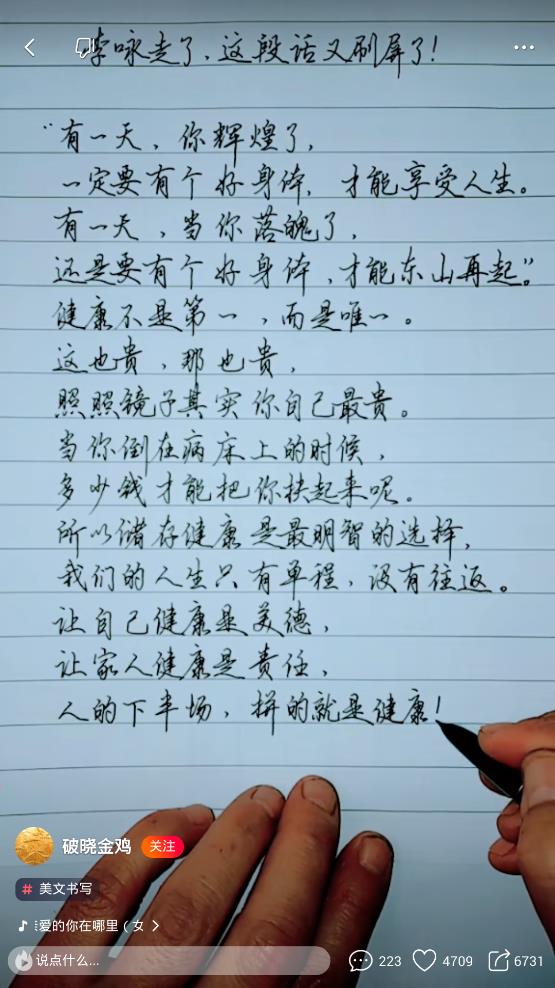 李咏走了,这段话又刷屏了!
“有一天,你辉煌了,
一定要有个好身体,才能享受人生。
有一天,当你落魄了,
还是要有个好身体,才能东山再起”。
健康不是第一,而是唯一。
这也贵,那也贵,
照照镜子其实你自己最贵。
当你倒在病床上的时候,
多少钱才能把你扶起来呢。
所以储存健康是最明智的选择,
我们的人生只有单程,没有往返。
让自己健康是美德,
让家人健康是责任,
人的下半场,拼的就是健康!
破晓金鸡 关注
# 美文书写
爱的你在哪里(女
说点什么... 223 4709 6731